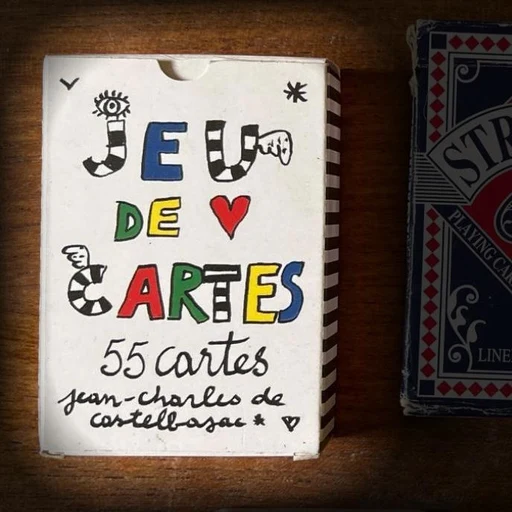 JEU
DE
CARTES
55 cartes
jean-charles de
castelbajac
STR
PLAYING CAR
LINE